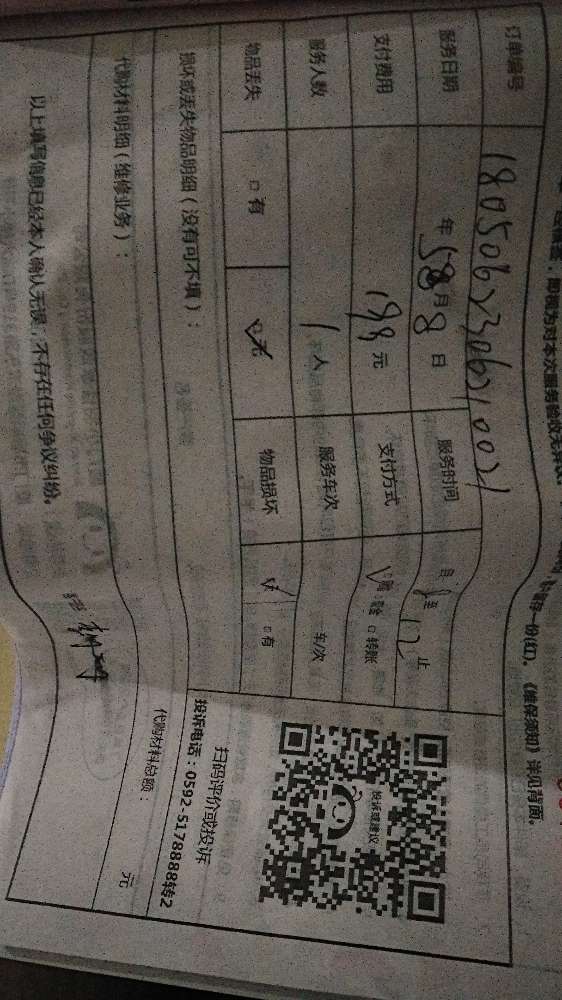 即视为对本次服务验收无异议
存一份(红)。《维保须知》详见背面。
订单编号 1805062306210021
服务日期 年 5月 8日 服务时间 自 8 至 12 止
支付费用 198元 支付方式 □ 现金 □ 转账
服务人数 1人 服务车次 车/次
物品丢失 □有 □无 物品损坏 □有
损坏或丢失物品明细（没有可不填）：
代购材料明细（维修业务）：
以上填写信息已经本人确认无误，不存在任何争议纠纷。
投诉或建议
扫码评价或投诉
投诉电话：0592-5178888转2
代购材料总额： 元